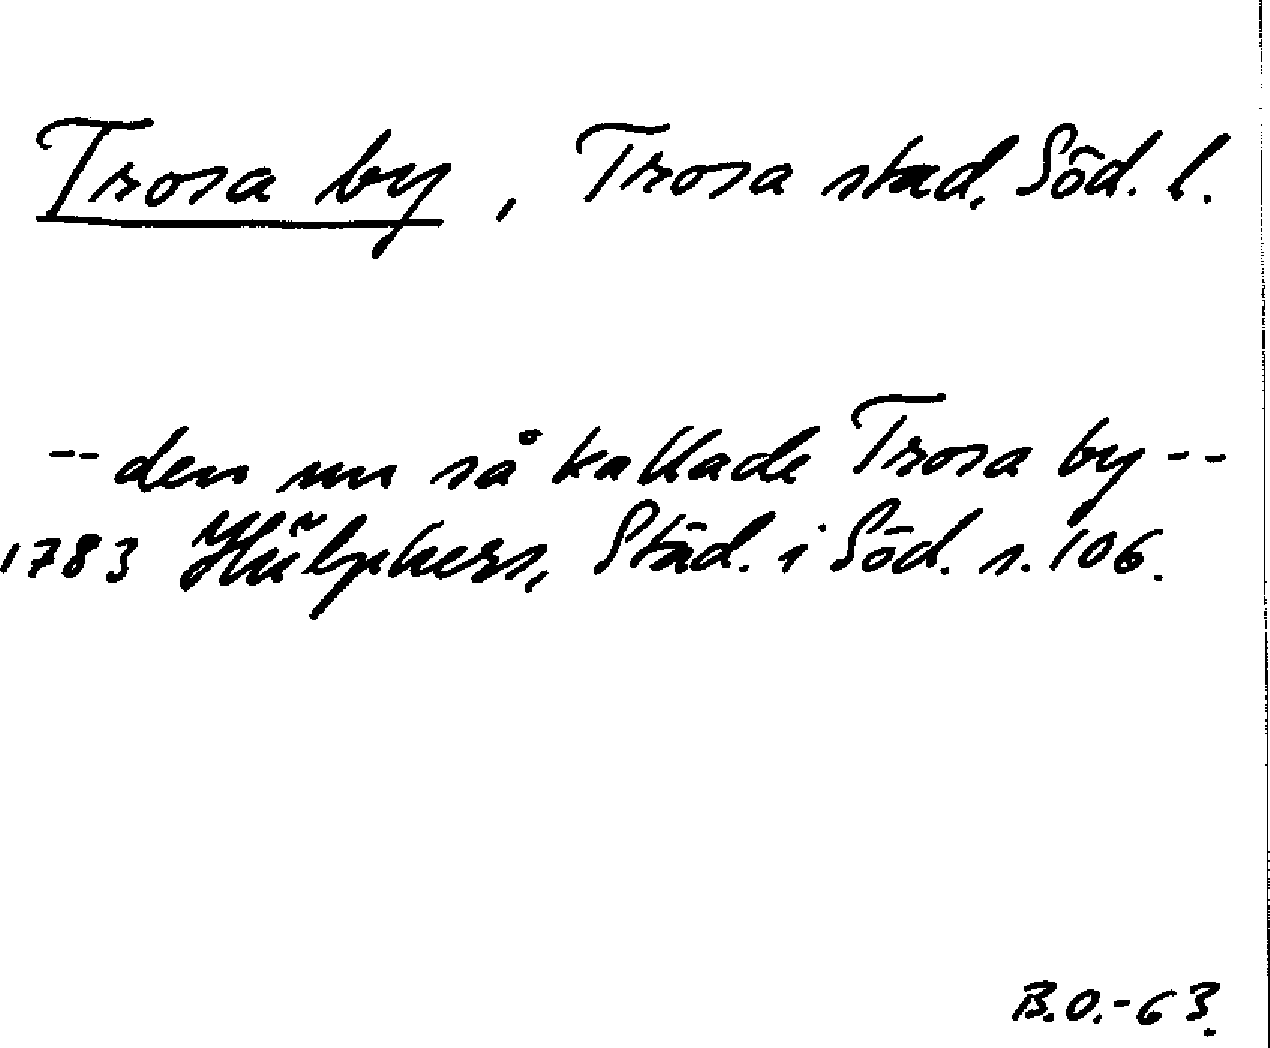 Trosa by, Trosa stad, Söd. l.
-- den nu så kallade Trosa by --
1783 Hülphers, Städ. i Söd. s. 106.
B.O.-63.